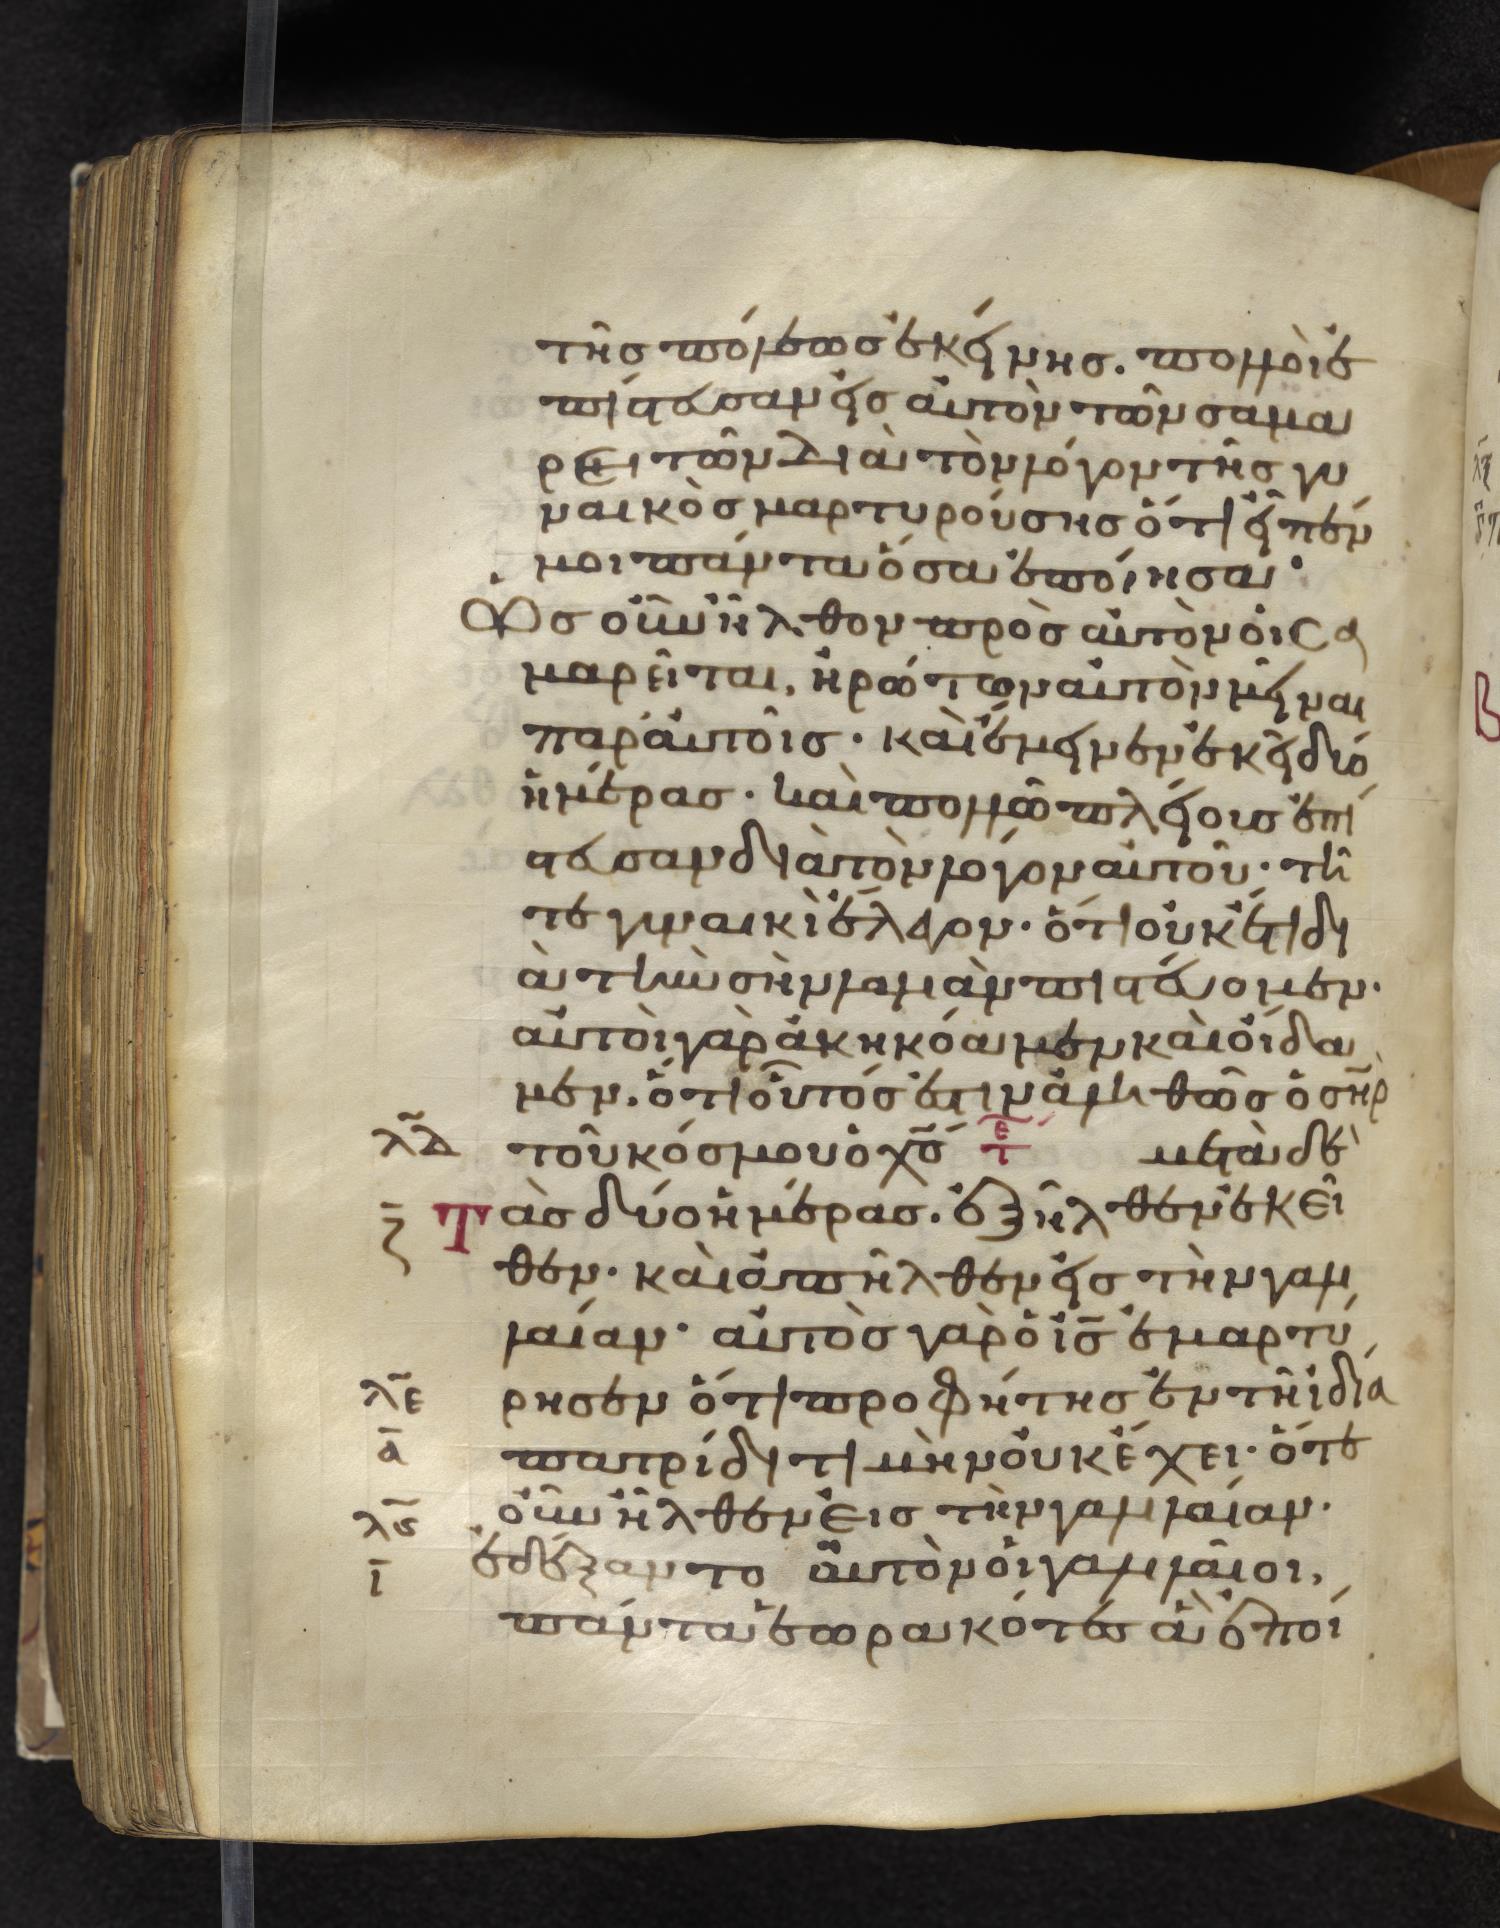 τῆς πόλεως ἐκείνης. πολλοὶ ἐ
πίστευσαν εἰς αὐτὸν τῶν σαμα
ρειτῶν διὰ τὸν λόγον τῆς γυ
ναικὸς μαρτυρούσης ὅτι εἶπέν
μοι πάντα ὅσα ἐποίησα·
Ὡς οὖν ἦλθον πρὸς αὐτὸν οἱ Σα
μαρεῖται, ἠρώτων αὐτὸν μεῖναι
παρ' αὐτοῖς· καὶ ἔμεινεν ἐκεῖ δύο
ἡμέρας· καὶ πολλῶ πλείους ἐπί
στευσαν διὰ τὸν λόγον αὐτοῦ· τῆ
τε γυναικὶ ἔλεγον· ὅτι οὐκέτι δι
ὰ τὴν σὴν λαλιὰν πιστεύομεν·
αὐτοὶ γὰρ ἀκηκόαμεν καὶ οἴδα
μεν. ὅτι οὗτός ἐστιν ἀληθῶς ὁ σ̅η̅ρ
λ̅δ̅ τοῦ κόσμου ὁ χ̅ς̅ τε μετὰ δὲ
ζ̅ Τὰς δύο ἡμέρας. ἐξῆλθεν ἐκεῖ
θεν· καὶ ἀπῆλθεν εἰς τὴν γαλι
λαίαν· αὐτὸς γὰρ ὁ ι̅ς̅ ἐμαρτύ
λ̅ε̅ ρησεν ὅτι προφήτης ἐν τῆ ἰδία
α̅ πατρίδι τιμὴν οὐκ ἔχει· ὅτε
λ̅ϛ̅ οὖν ἦλθεν εἰς τὴν γαλιλαίαν·
ι̅ ἐδέξαντο αὐτὸν οἱ γαλιλαῖοι,
πάντα ἑωρακότες ἃ ἐποί